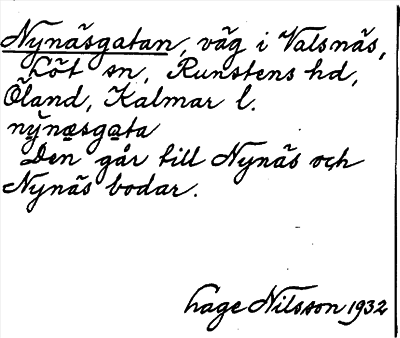 Nynäsgatan, väg i Valsnäs,
Löt sn, Runstens hd,
Öland, Kalmar l.
nynæsgata
Den går till Nynäs och
Nynäs bodar.
Lage Nilsson 1932